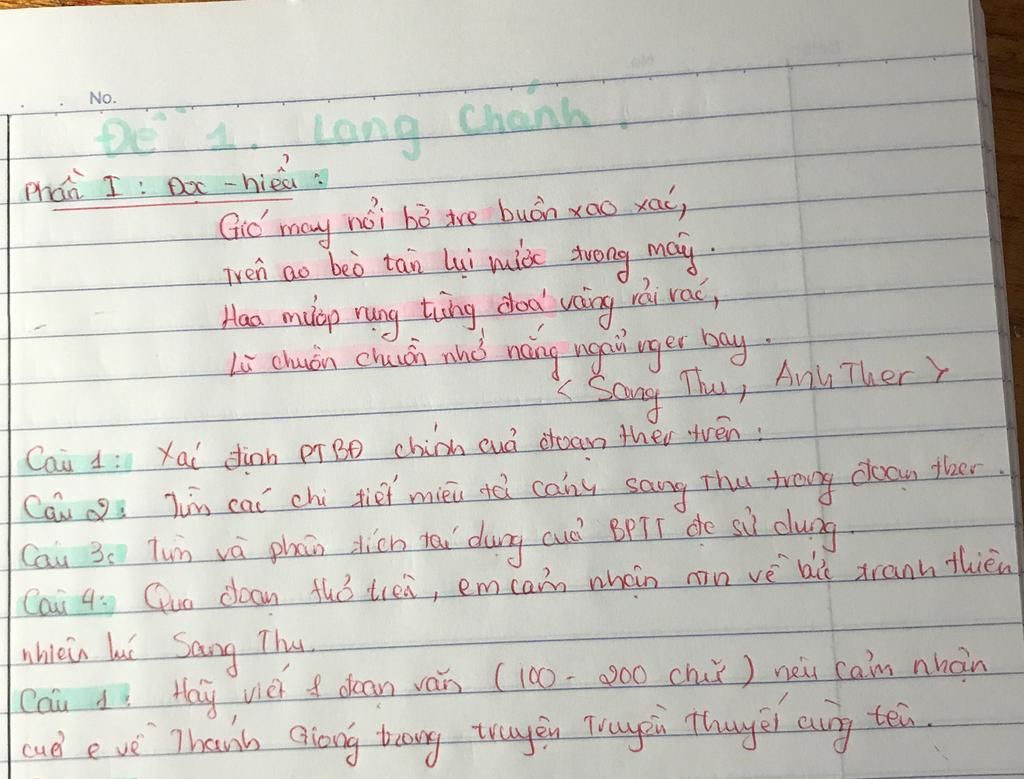 No.
Đề 1. Lang Chánh.
Phần I: Đọc - hiểu:
Gió may nổi bờ tre buồn xao xác,
Trên ao bèo tàn lụi nước trong mây.
Hoa mướp rụng từng đoá vàng rải rác,
Lũ chuồn chuồn nhớ nắng ngẩn ngơ bay.
< Sang Thu, Anh Thơ >
Câu 1: Xác định PTBĐ chính của đoạn thơ trên:
Câu 2: Tìm các chi tiết miêu tả cảnh sang thu trong đoạn thơ.
Câu 3: Tìm và phân tích tác dụng của BPTT đc sử dụng.
Câu 4: Qua đoạn thơ trên, em cảm nhận ntn về bức tranh thiên
nhiên lúc Sang Thu.
Câu 1: Hãy viết 1 đoạn văn (100 - 200 chữ) nêu cảm nhận
của e về Thánh Gióng trong truyện Truyền Thuyết cùng tên.